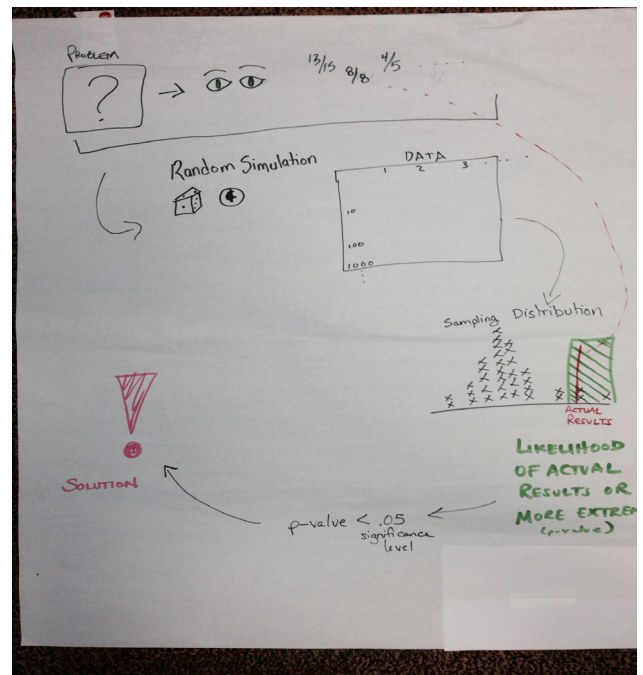 PROBLEM
?
13/15 8/8 4/5 ....
Random Simulation
DATA
1 2 3 ....
10
100
1000
Sampling Distribution
ACTUAL
RESULTS
LIKELIHOOD
OF ACTUAL
RESULTS OR
MORE EXTREM
(p-value)
p-value < .05
significance
level
!
SOLUTION